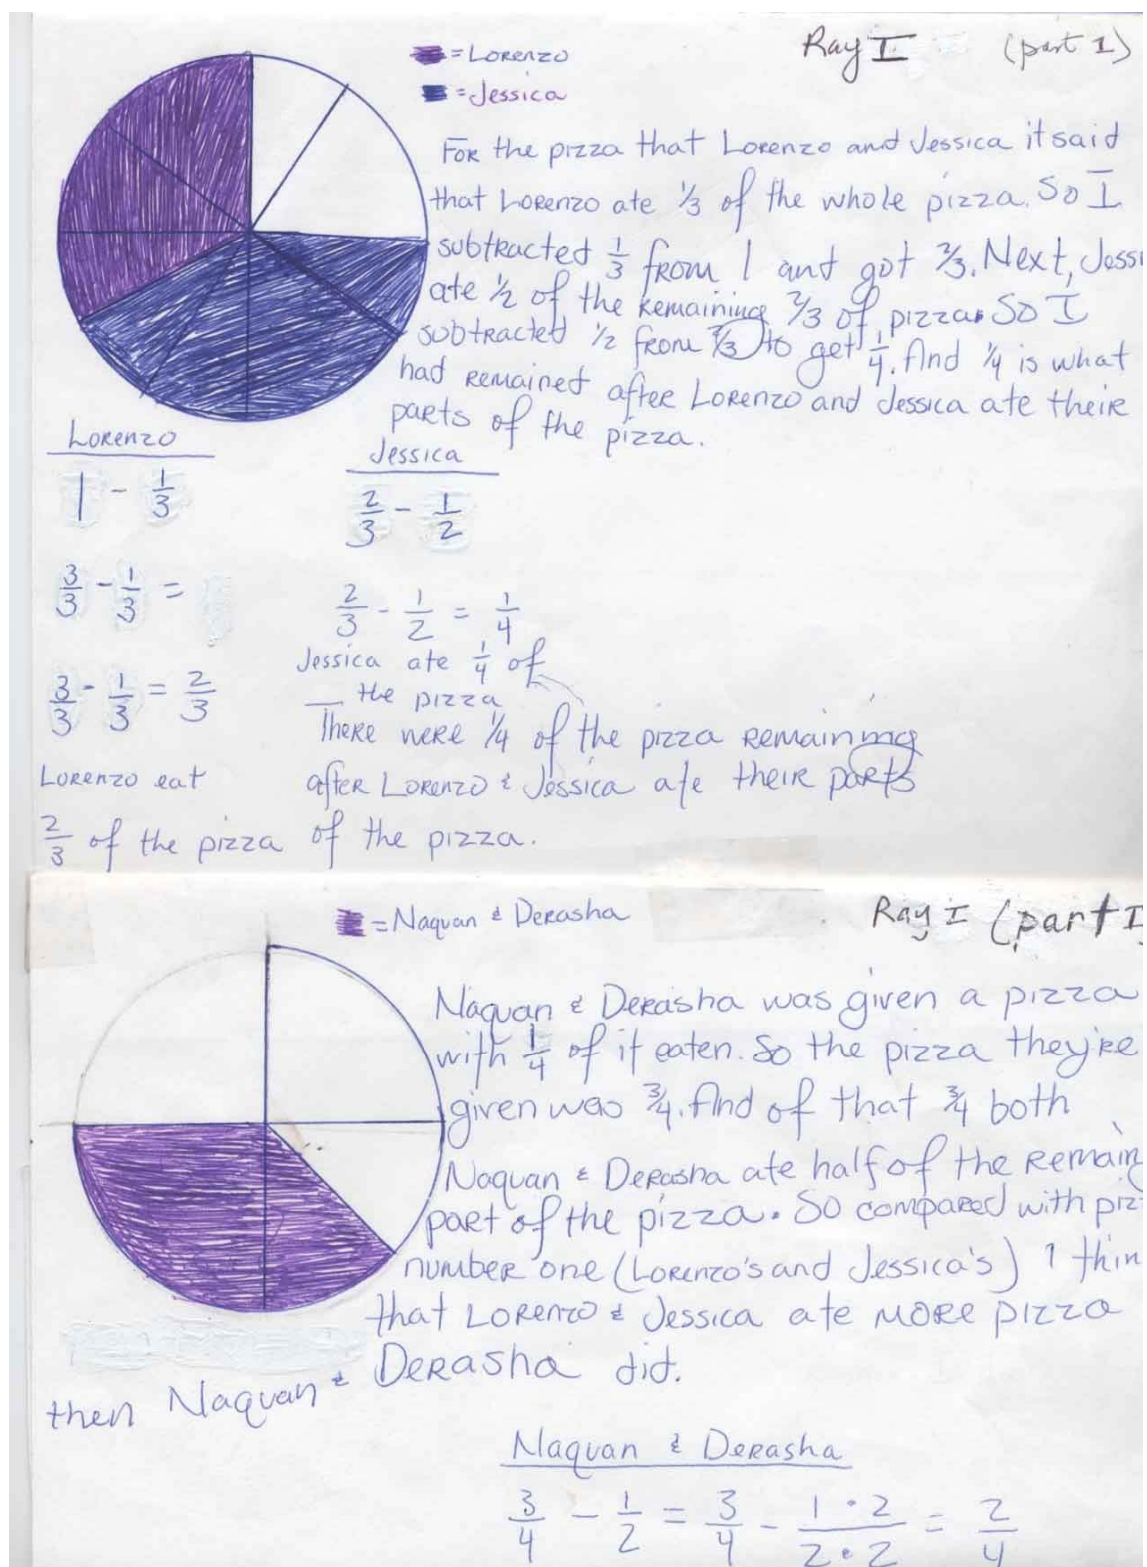 = Lorenzo
= Jessica
Ray I (part 1)
For the pizza that Lorenzo and Jessica it said
that Lorenzo ate 1/3 of the whole pizza. So I
subtracted 1/3 from 1 and got 2/3. Next, Jessi
ate 1/2 of the remaining 2/3 of pizza. So I
subtracted 1/2 from 2/3 to get 1/4. And 1/4 is what
had remained after Lorenzo and Jessica ate their
parts of the pizza.
Lorenzo
1 - 1/3
3/3 - 1/3 =
3/3 - 1/3 = 2/3
Lorenzo eat
2/3 of the pizza
Jessica
2/3 - 1/2
2/3 - 1/2 = 1/4
Jessica ate 1/4 of
the pizza
There were 1/4 of the pizza remaining
after Lorenzo & Jessica ate their parts
of the pizza.
= Naquan & Derasha
Ray I (part I
Naquan & Derasha was given a pizza
with 1/4 of it eaten. So the pizza they're
given was 3/4. And of that 3/4 both
Naquan & Derasha ate half of the remain
part of the pizza. So compared with piz
number one (Lorenzo's and Jessica's) I thin
that Lorenzo & Jessica ate more pizza
then Naquan & Derasha did.
Naquan & Derasha
3/4 - 1/2 = 3/4 - 1 • 2/2 • 2 = 2/4